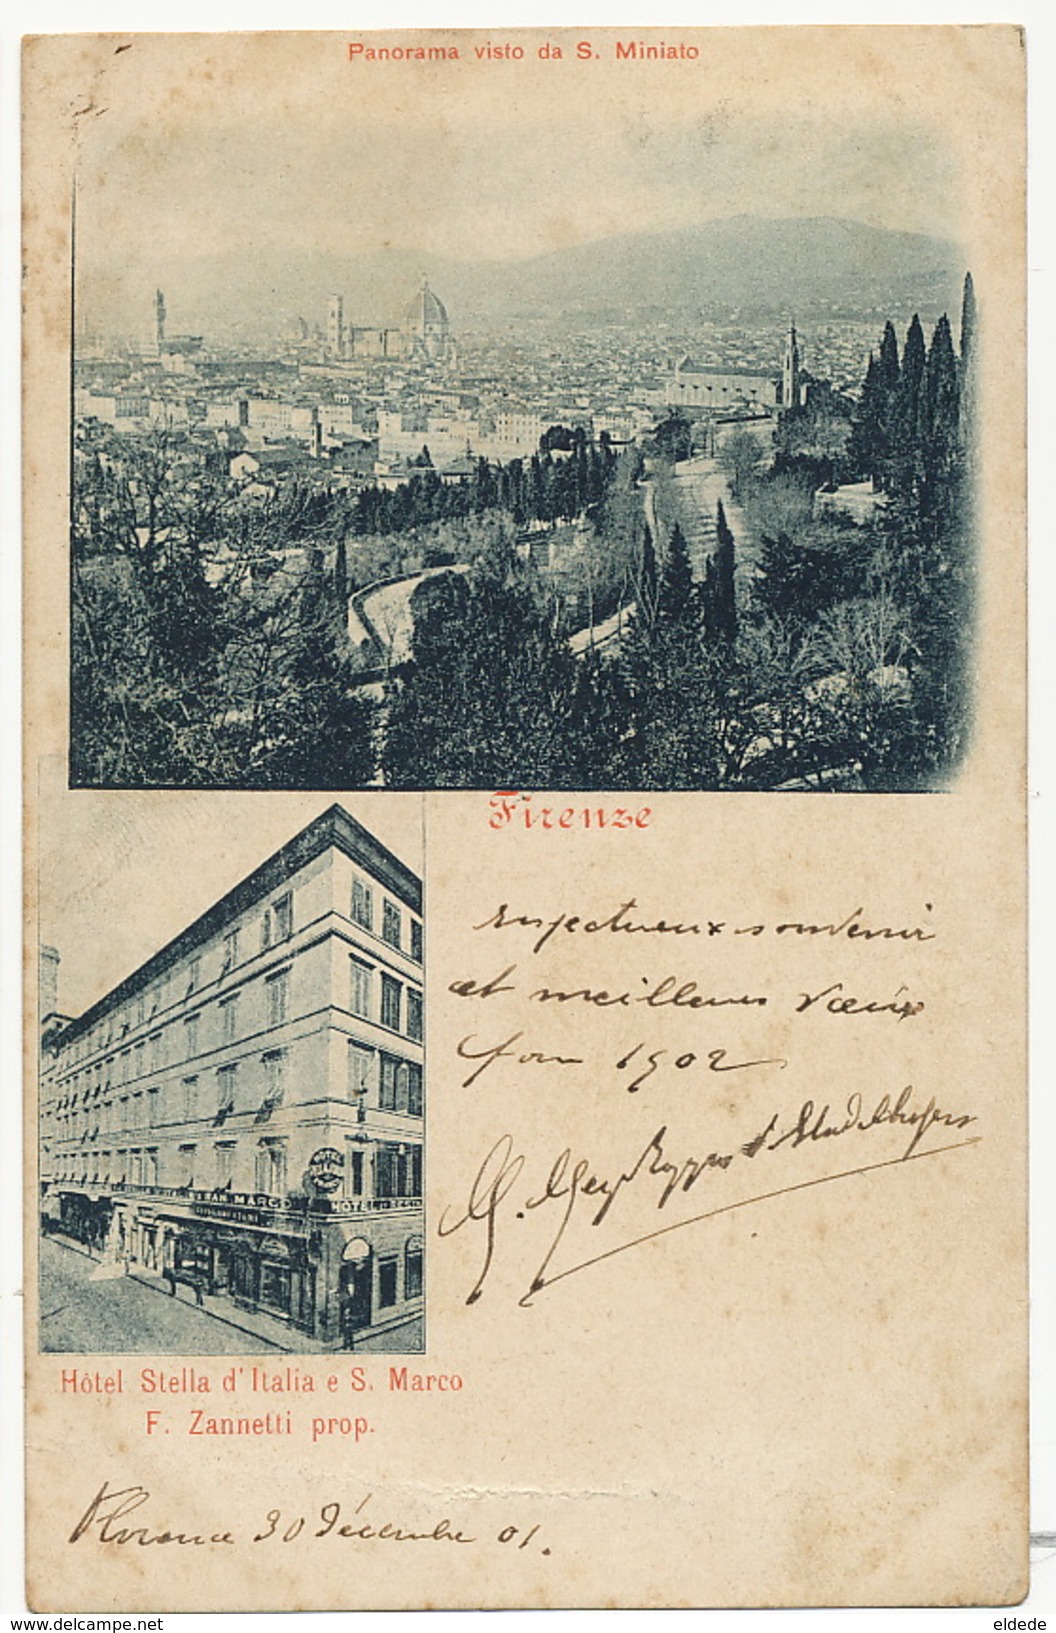 Panorama visto da S. Miniato
Firenze
respectueux souvenir
et meilleurs vœux
pour 1902
HÔTEL
SAN MARCO
HÔTEL
Hôtel Stella d'Italia e S. Marco
F. Zannetti prop.
Florence 30 Décembre 01.
www.delcampe.net
eldede